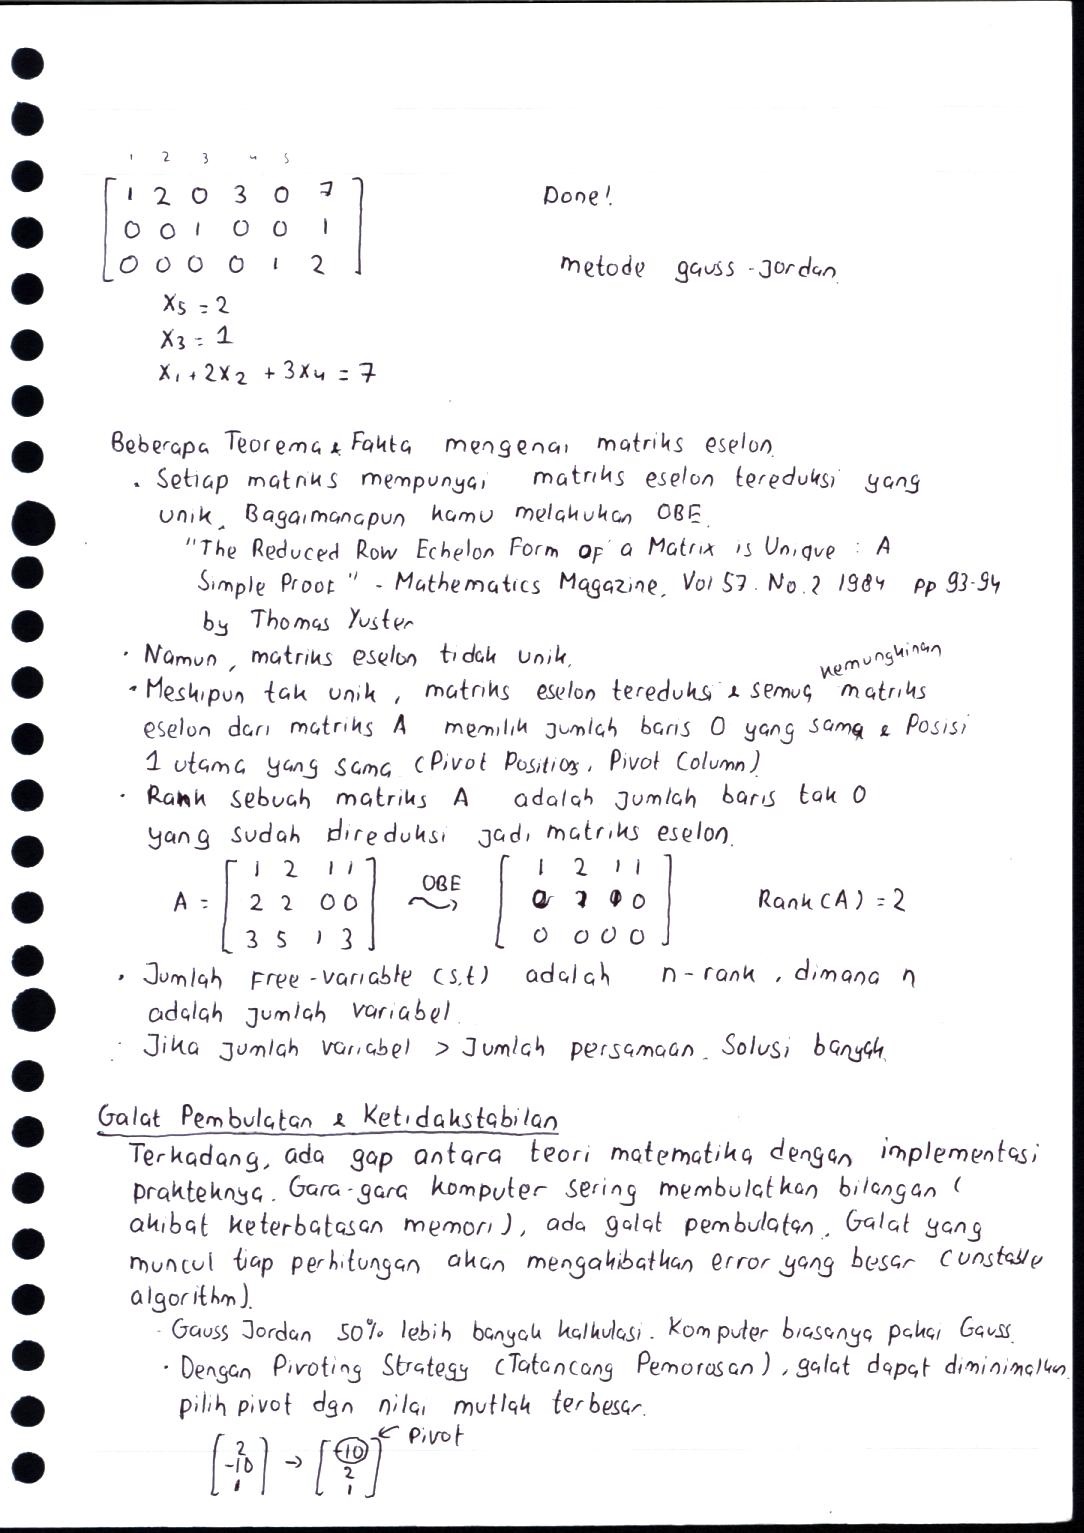 1 2 3 4 5
1 2 0 3 0 7 Done!
0 0 1 0 0 1
0 0 0 0 1 2 metode gauss-Jordan
x5 = 2
x3 = 1
x1 + 2x2 + 3x4 = 7
Beberapa Teorema & Fakta mengenai matriks eselon.
• Setiap matriks mempunyai matriks eselon tereduksi yang
unik. Bagaimanapun kamu melakukan OBE.
"The Reduced Row Echelon Form of a Matrix is Unique : A
Simple Proof" - Mathematics Magazine, Vol 57. No. 2 1984 pp 93-94
by Thomas Yuster
• Namun, matriks eselon tidak unik.
kemungkinan
• Meskipun tak unik, matriks eselon tereduksi & semua matriks
eselon dari matriks A memilik jumlah baris 0 yang sama & Posisi
1 utama yang sama (Pivot Position, Pivot Column)
• Rank sebuah matriks A adalah jumlah baris tak 0
yang sudah direduksi jadi matriks eselon.
A = [1 2 1 1] OBE [1 2 1 1]
[2 2 0 0] → [0 0] Rank(A) = 2
[3 5 1 3] [0 0 0 0]
• Jumlah Free-variable (s,t) adalah n-rank, dimana n
adalah jumlah variabel.
• Jika jumlah variabel > Jumlah persamaan. Solusi banyak.
Galat Pembulatan & Ketidakstabilan
Terkadang, ada gap antara teori matematika dengan implementasi
prakteknya. Gara-gara komputer sering membulatkan bilangan (
akibat keterbatasan memori), ada galat pembulatan. Galat yang
muncul tiap perhitungan akan mengakibatkan error yang besar (unstable
algorithm).
• Gauss Jordan 50% lebih banyak kalkulasi. Komputer biasanya pakai Gauss.
• Dengan Pivoting Strategy (Tatancang Pemorosan), galat dapat diminimalkan
pilih pivot dgn nilai mutlak terbesar.
[2] [-10] ← Pivot
[-10] → [2]
[1] [1]